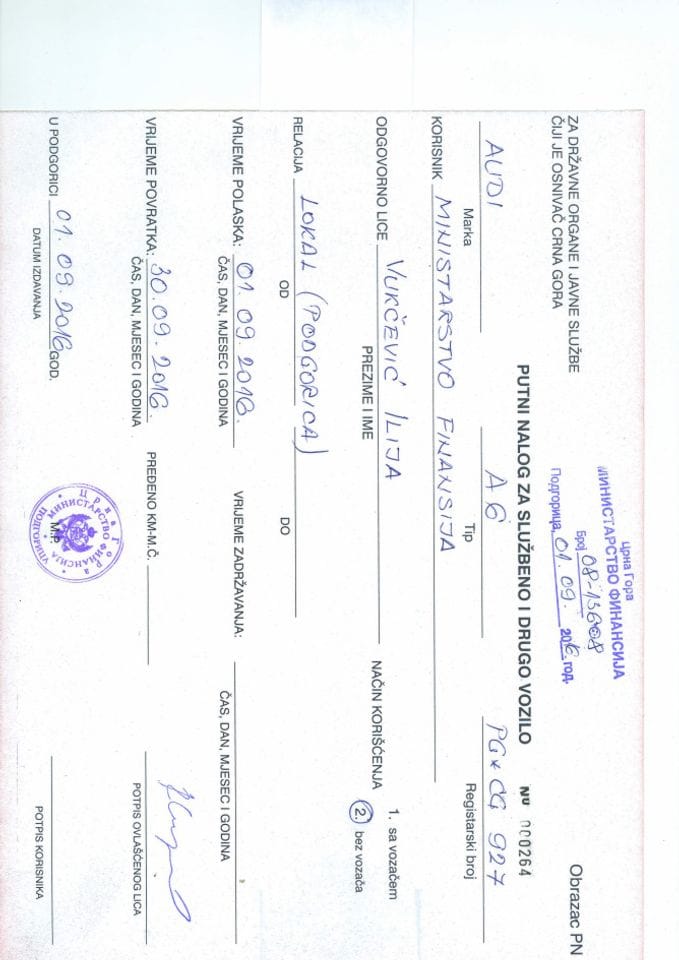 Obrazac PN
ZA DRŽAVNE ORGANE I JAVNE SLUŽBE
ČIJI JE OSNIVAČ CRNA GORA
Црна Гора
МИНИСТАРСТВО ФИНАНСИЈА
Број 08-13608
Подгорица, 01.09. 2016 год.
PUTNI NALOG ZA SLUŽBENO I DRUGO VOZILO
Nº 000264
AUDI A6 PG*CG 927
Marka Tip Registarski broj
KORISNIK MINISTARSTVO FINANSIJA
NAČIN KORIŠĆENJA 1. sa vozačem
2. bez vozača
ODGOVORNO LICE VUKČEVIĆ ILIJA
PREZIME I IME
RELACIJA LOKAL (PODGORICA)
OD DO
VRIJEME POLASKA: 01.09.2016. VRIJEME ZADRŽAVANJA:
ČAS, DAN, MJESEC I GODINA ČAS, DAN, MJESEC I GODINA
VRIJEME POVRATKA: 30.09.2016. PREĐENO KM-M.Č.
ČAS, DAN, MJESEC I GODINA POTPIS OVLAŠĆENOG LICA
Црна Гора
МИНИСТАРСТВО ФИНАНСИЈА
ПОДГОРИЦА
M.P.
U PODGORICI 01.09.2016 GOD.
DATUM IZDAVANJA POTPIS KORISNIKA